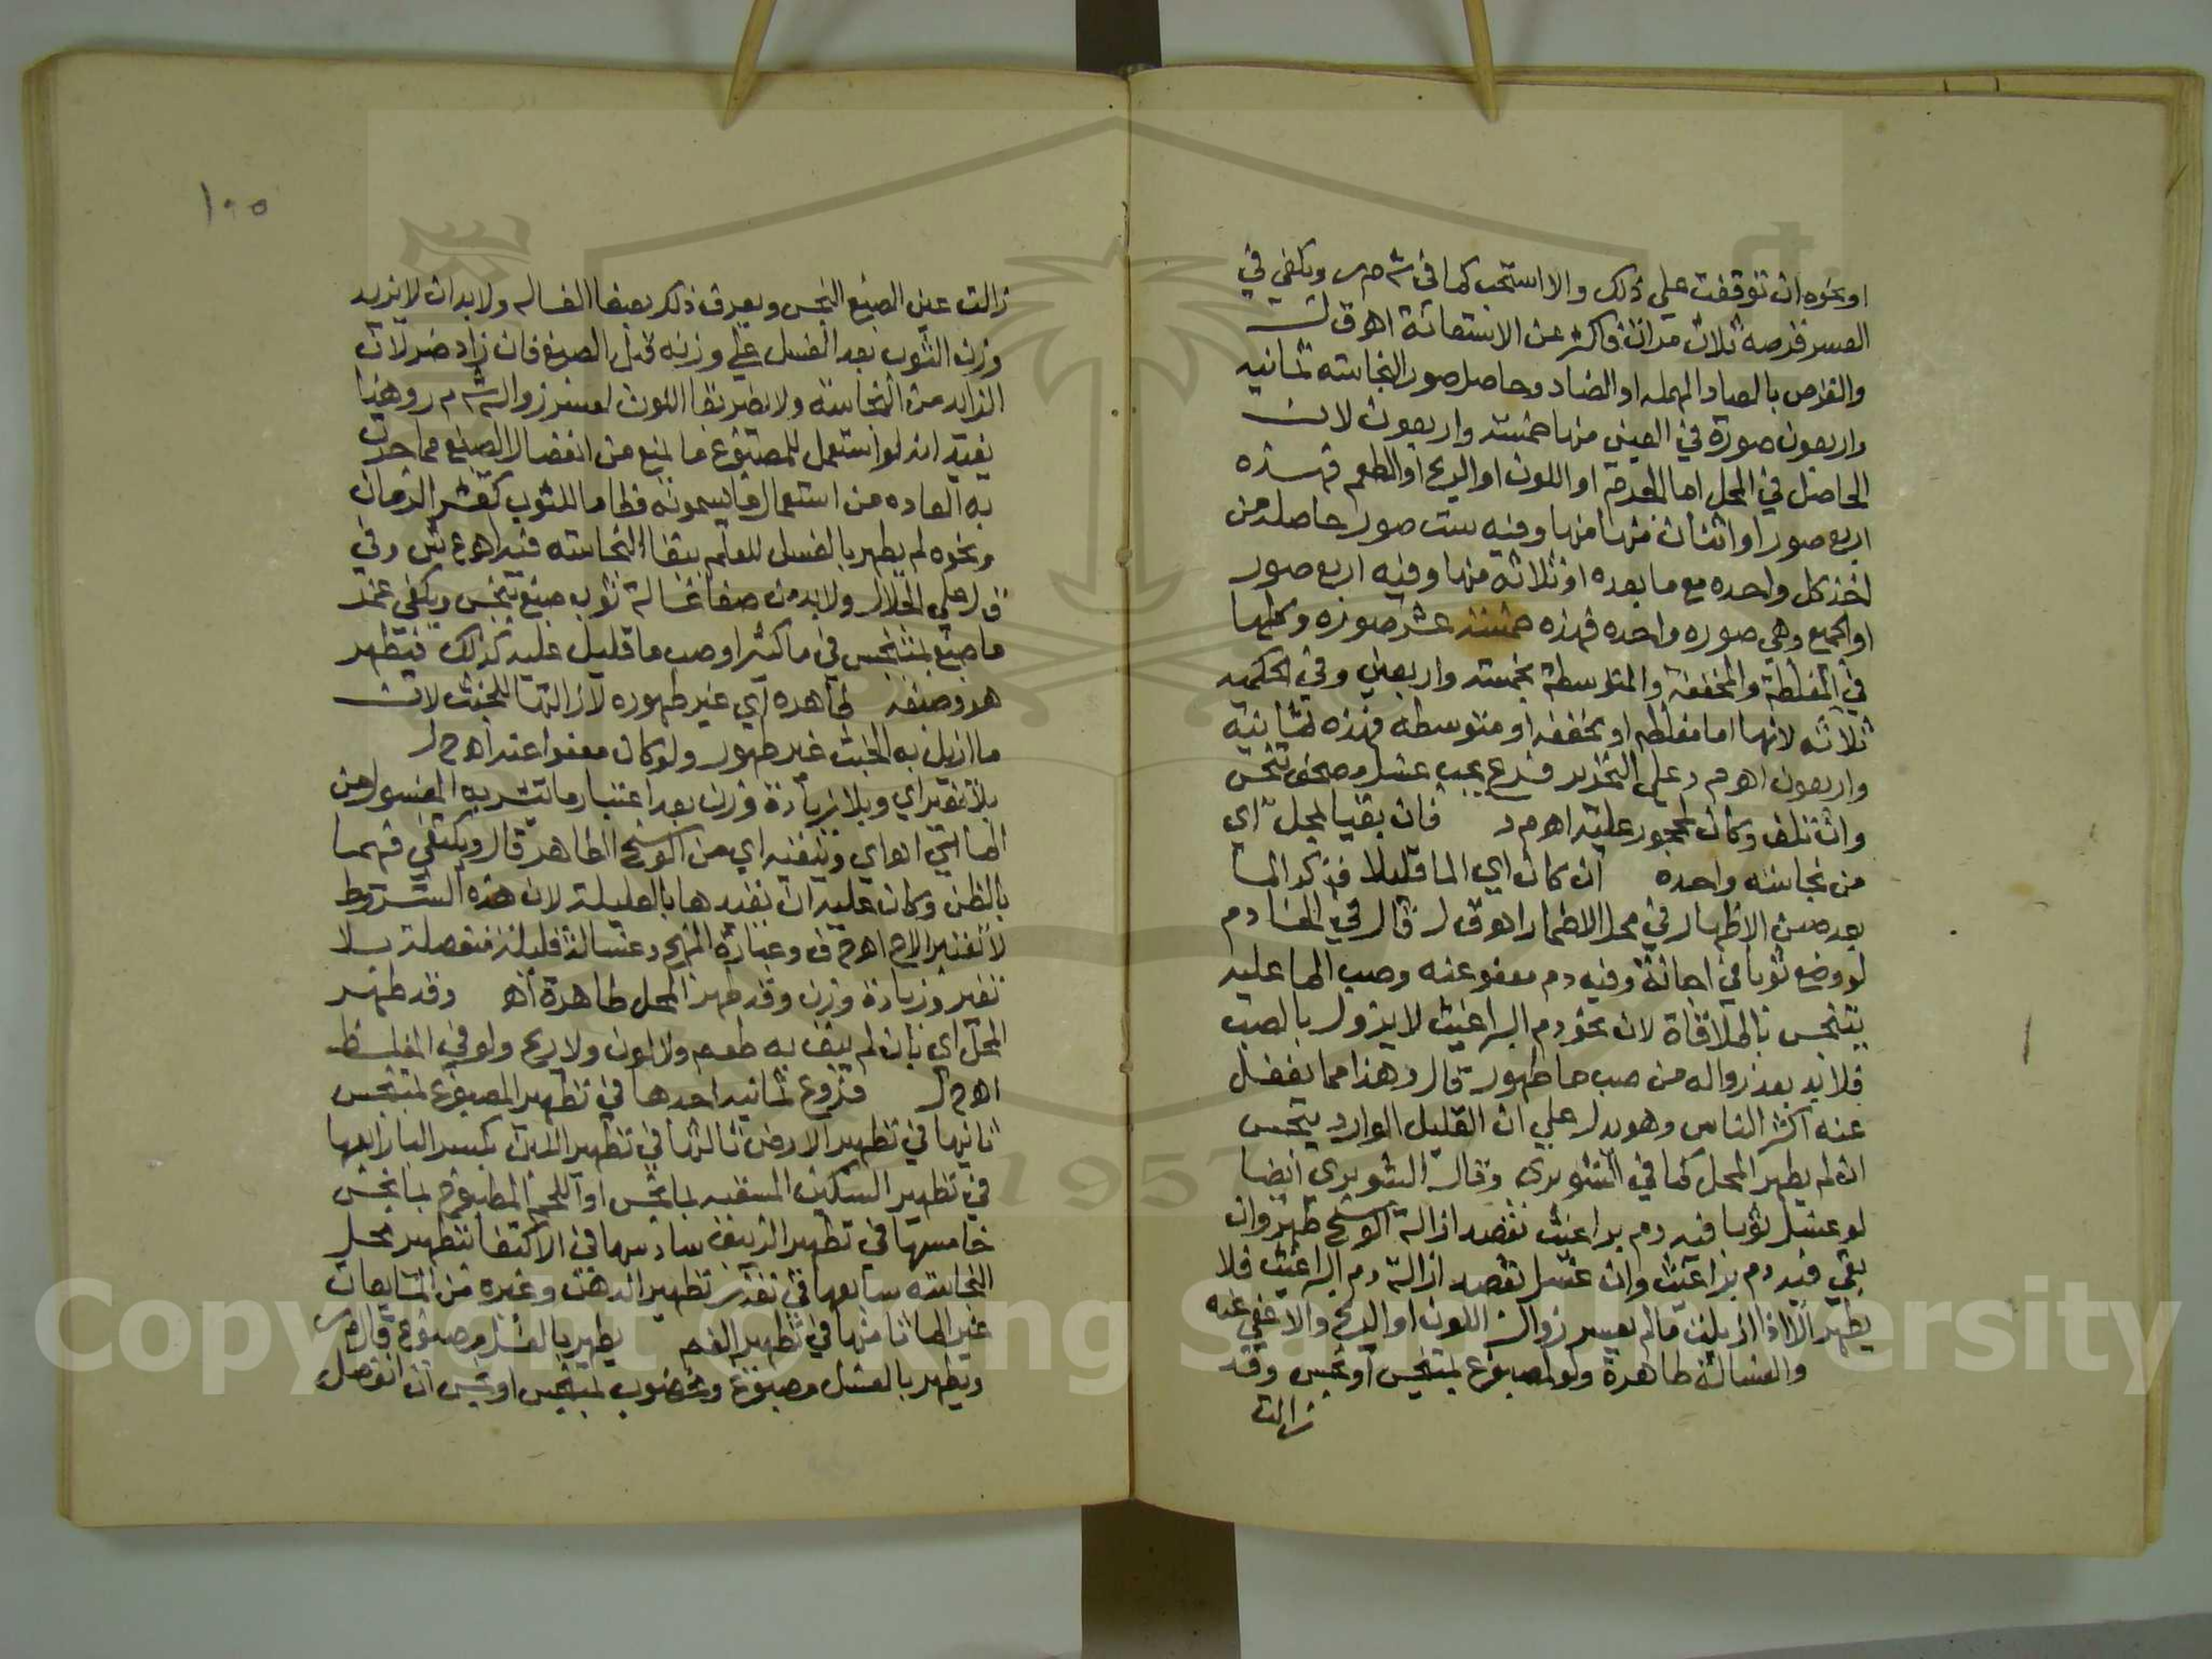 او نحوه ان توقفت على ذلك والا استحب كما في ش م ر ويكفي في
العسر قرصه ثلاث مرات فاكثر عن الاستعانة اهـ ق ل
والقرص بالصاد المهمله او الضاد وحاصل صور النجاسته ثمانيه
واربعون صورة في العين منها خمسة واربعون لان
الحاصل في المحل اما الجرم او اللون او الريح او الطعم فهذه
اربع صور او اثنان منها وفيه ست صور حاصله من
اخذ كل واحده مع ما بعده او ثلاثه منها وفيه اربع صور
او الجميع وهي صوره واحده فهذه خمسة عشر صوره وكلها
في المغلظة والمخففة والمتوسطة بخمسة واربعين وفي الحكميه
ثلاثه لانها اما مغلظه او مخففه او متوسطه فهذه ثمانية
واربعون اهـ م د على التحرير فرع يجب غسل مصحف تنجس
وان تلف وكان لمحجور عليه اهـ م د فان بقيا لمحل اى
من نجاسته واحده ان كان اي الما قليلا فذكر الما
بعد من الاظهار في محل الاضمار اهـ ق ل قال في الخادم
لو وضع ثوبا في اجانة وفيه دم معفو عنه وصب الما عليه
يتنجس بالملاقاة لان نحو دم البراغيث لا يزول بالصب
فلا بد بعد زواله من صب ما طهور قال وهذا مما يغفل
عنه اكثر الناس وهو يدل علي ان القليل الوارد ينجس
ان لم يطهر المحل كما في الشوبرى وقال الشوبرى ايضا
لو غسل ثوبا فيه دم براغيث بقصد ازالة الوسخ طهر وان
بقي فيه دم براغيث وان غسل بقصد ازالة دم البراغيث فلا
يطهر الا اذا ازيلت ما لم يعسر زوال اللون او الريح والا عفي عنه
والغسالة طاهرة ولو لمصبوغ بمتنجس او نجس وقد
زالت
١٠٥
زالت عين الصبغ النجس ويعرف ذلك بصفا الغساله ولا بد ان لا يزيد
وزن الثوب بعد الغسل على وزنه قبل الصبغ فان زاد ضر لان
الزايد من النجاسته ولا يضر بقا اللون لعسر زواله ش م ر وهذا
يفيد انه لو استعمل للمصبوغ ما يمنع من انفصال الصبغ مما جرت
به العاده من استعمال ما يسمونه فطاما للثوب كقشر الرمان
ونحوه لم يطهر بالغسل للعلم ببقا النجاسته فيه اهـ ع ش وفي
ق ل على الجلال ولا بد من صفا غسالة ثوب صبغ بنجس ويكفي غمر
ما صبغ بمتنجس في ما كثير او صب ما قليل عليه كذلك فيطهر
هو وصبغه طاهره اي غير طهوره لازالتها للخبث لان
ما ازيل به الخبث غير طهور ولو كان معفوا عنه اهـ ح ل
بلا تغير اي وبلا زيادة وزن بعد اعتبار ما يتشربه المغسول من
الما التي اهـ اي وتنقيه اي من الوسخ الظاهر قال ويكتفي فيهما
بالظن وكان عليه ان يقيدها بالقليلة لان هذه الشروط
لا تعتبر الا ح اهـ م ف وعبارة المنهج وغسالة قليلة منفصلة بلا
تغير وزيادة وزن وقد طهر المحل طاهرة اهـ وقد طهر
المحل اى بان لم يبق به طعم ولا لون ولا ريح ولو في المغلظ
اهـ ح ل فروع ثمانيه احدها في تطهير المصبوغ بمتنجس
ثانيها في تطهير الارض ثالثها في تطهير اللبن بكسر البا رابعها
في تطهير السكين المسقيه بما نجس او اللحم المطبوخ بما نجس
خامسها في تطهير الزيبق سادسها في الاكتفا بتطهير محل
النجاسته سابعها في تعذر تطهير الدهن وغيره من المايعات
غير الما ثامنها في تطهير الفم يطهر بالغسل مصبوغ قال م ر
ويطهر بالغسل مصبوغ ومخضوب بمتنجس او نجس ان انفصل